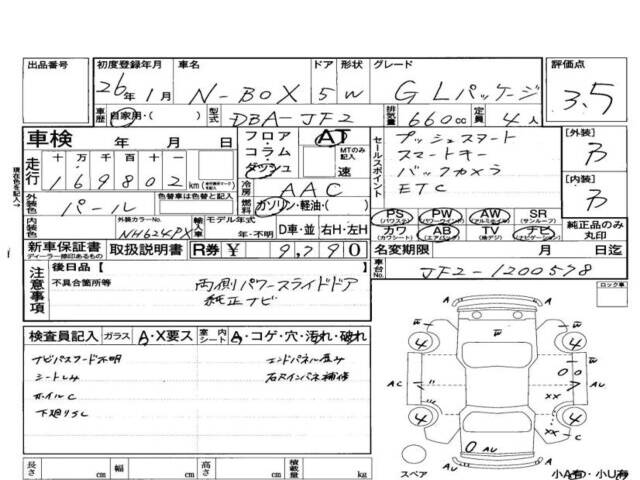 出品番号 初度登録年月 車名 ドア 形状 グレード 評価点
26年1月 N-BOX 5 W GLパッケージ 3.5
車歴 自家用・( ) 型式 DBA-JF2 排気量 660cc 定員 4人
車検 年 月 日 フロア・コラム・ダッシュ AT MTのみ記入 速
セールスポイント
プッシュスタート
スマートキー
バックカメラ
ETC
[外装]
[内装]
現在色を記入→
走行 十 万 千 百 十
169802km
冷房 AAC
外装色 パール 色替車は色替と記入
燃料 ガソリン・軽油・( )
PS (パワステ) PW (パワーウインド) AW (アルミホイル) SR (サンルーフ)
カワ (カワシート) AB (エアバック) TV (地デジ) ナビ (ナビゲーション)
純正品のみ丸印
内装色 外装カラーNo. NH624PX 輸入車 モデル年式 年・不明 D車・並 右H・左H
新車保証書 ディーラー捺印あるもの 取扱説明書 R券 ¥ 9,790 名変期限 月 日迄
車台No. JF2-1200578
注意事項 後日品【 】
不具合箇所等 両側パワースライドドア
純正ナビ
ロック車
検査員記入 ガラス A・X要ス 室内 シート A・コゲ・穴・汚れ・破れ
ナビパスワード不明
シートしみ
ホイルC
下廻りSC
エンドパネル歪み
4 4 4 4
W W AU
AC AU
XX
XX C
AU
スペア 小A有・小U有
長さ cm 幅 cm 高さ cm 積載量 kg